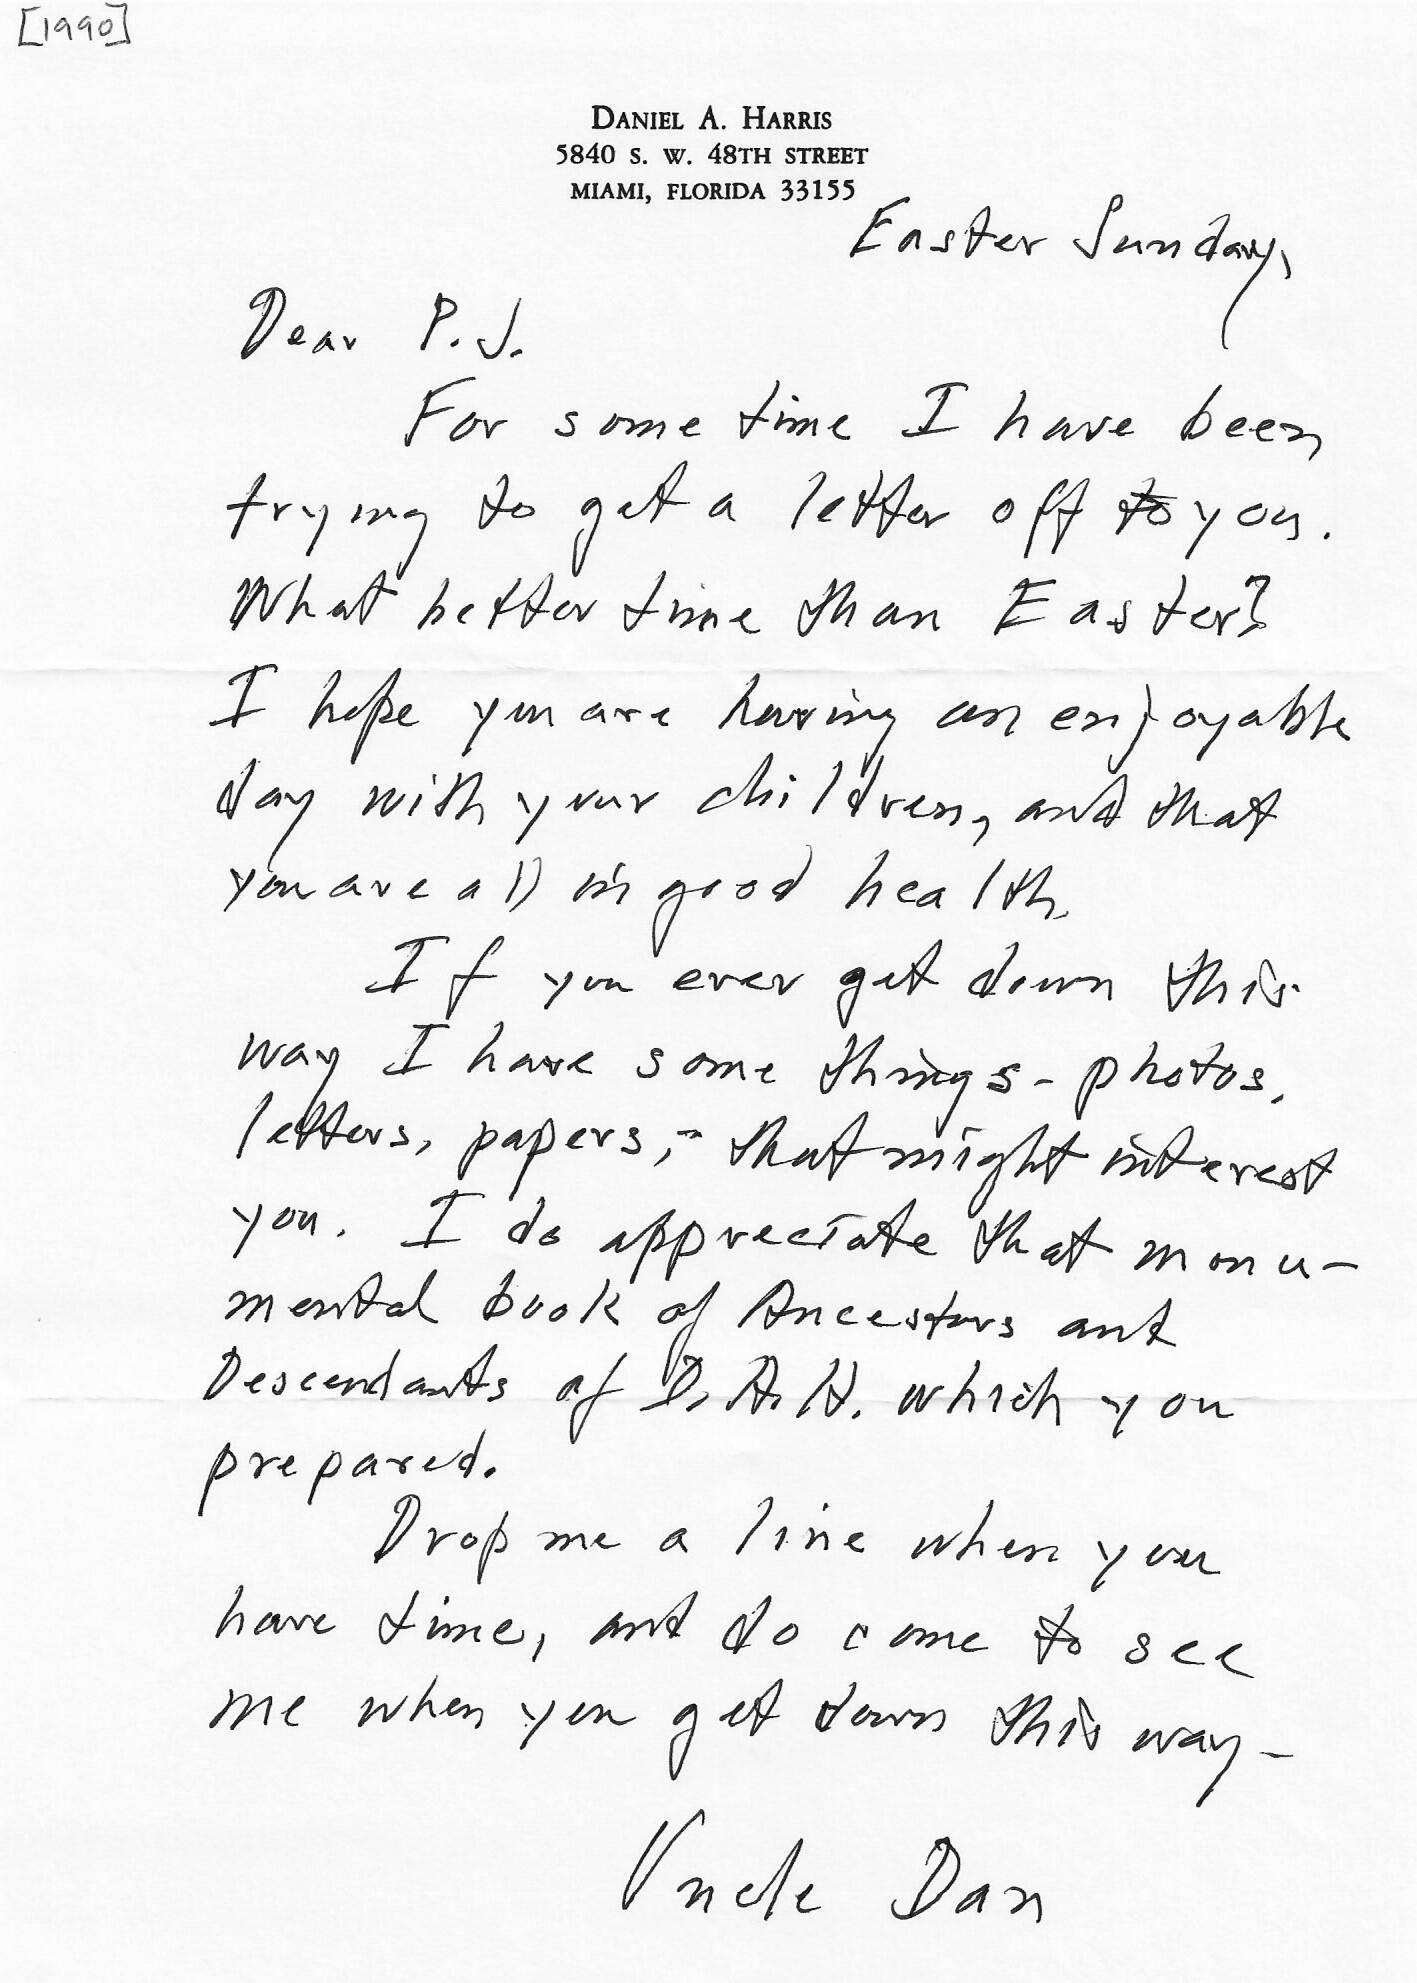 [1990]
DANIEL A. HARRIS
5840 S. W. 48TH STREET
MIAMI, FLORIDA 33155
Easter Sunday,
Dear P.J.
For some time I have been
trying to get a letter off to you.
What better time than Easter?
I hope you are having an enjoyable
day with your children, and that
you are all in good health.
If you ever get down this
way I have some things - photos,
letters, papers, - that might interest
you. I do appreciate that monu-
mental book of Ancestors and
Descendants of D.A.H. which you
prepared.
Drop me a line when you
have time, and do come to see
me when you get down this way -
Uncle Dan